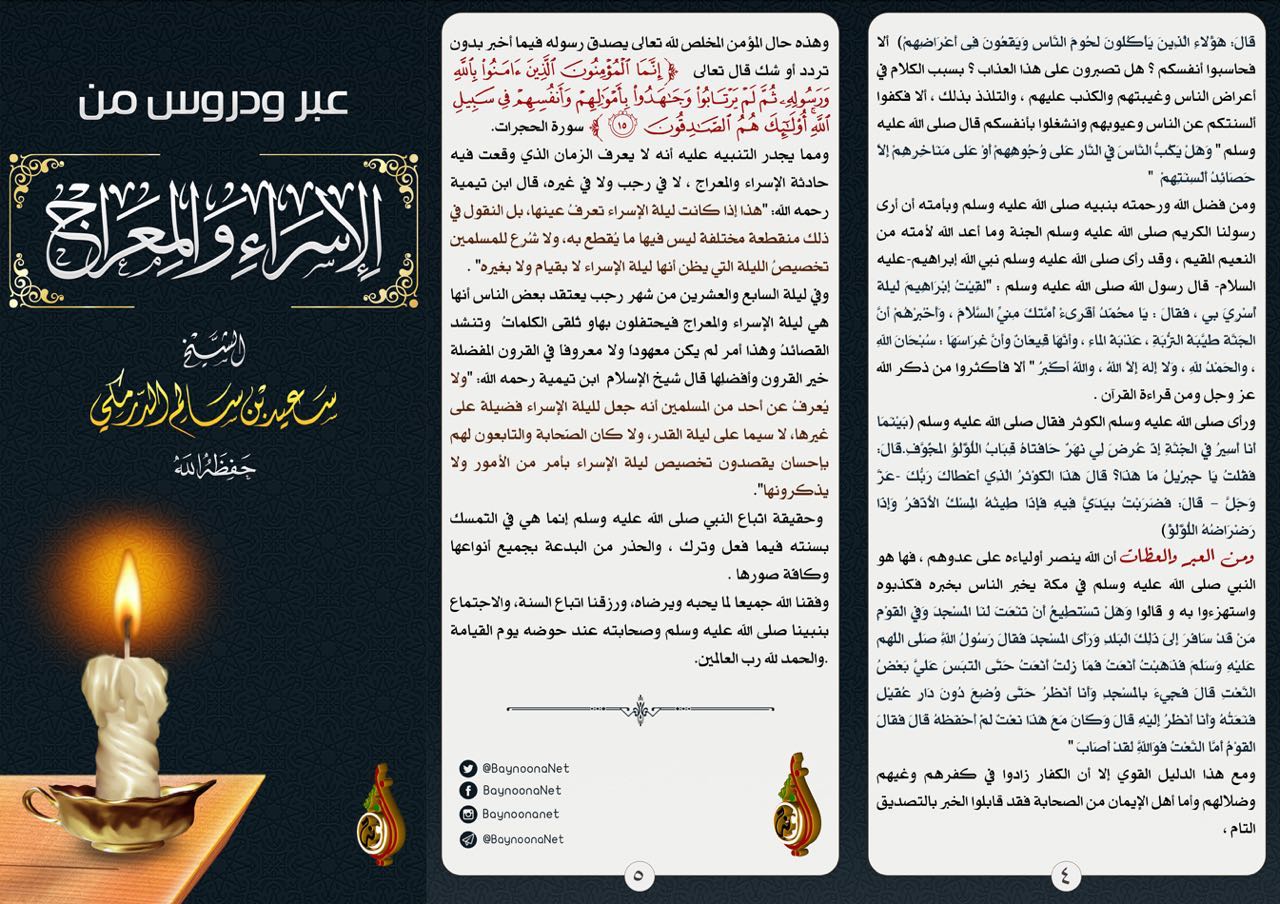 عبر ودروس من
الإسراء والمعراج
الشيخ
سعيد بن سالم الدرمكي
حفظه الله
قَالَ: هَؤُلَاءِ الَّذِينَ يَأْكُلُونَ لُحُومَ النَّاسِ وَيَقَعُونَ فِي أَعْرَاضِهِمْ) ألا
فحاسبوا أنفسكم ؟ هل تصبرون على هذا العذاب ؟ بسبب الكلام في
أعراض الناس وغيبتهم والكذب عليهم ، والتلذذ بذلك ، ألا فكفوا
ألسنتكم عن الناس وعيوبهم وانشغلوا بأنفسكم قال صلى الله عليه
وسلم " وَهَلْ يَكُبُّ النَّاسَ فِي النَّارِ عَلَى وُجُوهِهِمْ أَوْ عَلَى مَنَاخِرِهِمْ إِلَّا
حَصَائِدُ أَلْسِنَتِهِمْ "
ومن فضل الله ورحمته بنبيه صلى الله عليه وسلم وبأمته أن أرى
رسولنا الكريم صلى الله عليه وسلم الجنة وما أعد الله لأمته من
النعيم المقيم ، وقد رأى صلى الله عليه وسلم نبي الله إبراهيم-عليه
السلام- قال رسول الله صلى الله عليه وسلم : "لقِيْتُ إبْرَاهِيمَ ليلة
أُسْرِيَ بي ، فقالَ : يا محُمّدُ أقرِيءْ أمَّتكَ مِنيِّ السَّلَامَ ، وَأخْبِرْهُمْ أنَّ
الجَنّةَ طيِّبَةُ التُّرْبَةِ ، عَذْبَةُ الماءِ ، وأنَّهَا قِيعَانٌ وَأنَّ غِرَاسَهَا : سُبْحَانَ اللهِ
، والحَمْدُ للهِ ، وَلا إلهَ إلاَّ اللهُ ، واللهُ أكْبَرُ " ألا فأكثروا من ذكر الله
عز وجل ومن قراءة القرآن .
ورأى صلى الله عليه وسلم الكوثر فقال صلى الله عليه وسلم (بَيْنَمَا
أنا أسِيرُ في الجَنّةِ إذْ عُرِضَ لِي نَهَرٌ حَافتاهُ قِبَابُ اللُّؤلؤِ المُجَوَّفِ.قالَ:
فَقُلتُ يَا جِبْرِيلُ مَا هَذا؟ قالَ هَذَا الكَوْثرُ الذِي أعْطاكَ رَبُّكَ -عَزَّ
وَجَلَّ – قالَ: فَضَرَبْتُ بِيَدَيَّ فِيهِ فَإذَا طِينُهُ المِسْكُ الأَذْفَرُ وَإذَا
رَضْرَاضُهُ اللُّؤلؤُ)
ومن العبر والعظات أن الله ينصر أولياءه على عدوهم ، فها هو
النبي صلى الله عليه وسلم في مكة يخبر الناس بخبره فكذبوه
واستهزءوا به و قالوا وَهَلْ تَسْتَطِيعُ أنْ تنْعَتَ لنا المَسْجِدَ وَفِي القَوْمِ
مَنْ قَدْ سَافَرَ إلى ذلِكَ البَلدِ وَرَأى المَسْجِدَ فقالَ رَسُولُ اللهِ صَلّى اللهم
عَليْهِ وَسَلّمَ فذهَبْتُ أنْعَتُ فمَا زِلتُ أنْعَتُ حَتَّى التبَسَ عَليَّ بَعْضُ
النَّعْتِ قالَ فجِيءَ بالمَسْجِدِ وَأنا أنْظُرُ حَتّى وُضِعَ دُونَ دَارِ عَقِيْلٍ
فنَعَتُّهُ وَأنا أنْظُرُ إليْهِ قالَ وَكانَ مَعَ هَذا نعْتٌ لمْ أحْفَظهُ قالَ فقالَ
القَوْمُ أمَّا النَّعْتُ فوَاللهِ لقدْ أصَابَ "
ومع هذا الدليل القوي إلا أن الكفار زادوا في كفرهم وغيهم
وضلالهم وأما أهل الإيمان من الصحابة فقد قابلوا الخبر بالتصديق
التام ،
٤
وهذه حال المؤمن المخلص لله تعالى يصدق رسوله فيما أخبر بدون
تردد أو شك قال تعالى ﴿ إِنَّمَا الْمُؤْمِنُونَ الَّذِينَ ءَامَنُوا بِاللَّهِ
وَرَسُولِهِ ثُمَّ لَمْ يَرْتَابُوا وَجَاهَدُوا بِأَمْوَالِهِمْ وَأَنفُسِهِمْ فِي سَبِيلِ
اللَّهِ أُولَئِكَ هُمُ الصَّادِقُونَ ١٥ ﴾ سورة الحجرات.
ومما يجدر التنبيه عليه أنه لا يعرف الزمان الذي وقعت فيه
حادثة الإسراء والمعراج ، لا في رجب ولا في غيره، قال ابن تيمية
رحمه الله: "هذا إذا كانت ليلة الإسراء تعرفُ عينها، بل النقول في
ذلك منقطعة مختلفة ليس فيها ما يُقطع به، ولا شُرع للمسلمين
تخصيصُ الليلة التي يظن أنها ليلة الإسراء لا بقيام ولا بغيره" .
وفي ليلة السابع والعشرين من شهر رجب يعتقد بعض الناس أنها
هي ليلة الإسراء والمعراج فيحتفلون بهاو تُلقى الكلمات وتنشد
القصائدُ وهذا أمر لم يكن معهودا ولا معروفا في القرون المفضلة
خير القرون وأفضلها قال شيخ الإسلام ابن تيمية رحمه الله: "ولا
يُعرفُ عن أحد من المسلمين أنه جعل لليلة الإسراء فضيلة على
غيرها، لا سيما على ليلة القدر، ولا كان الصّحابة والتابعون لهم
بإحسان يقصدون تخصيص ليلة الإسراء بأمر من الأمور ولا
يذكرونها".
وحقيقة اتباع النبي صلى الله عليه وسلم إنما هي في التمسك
بسنته فيما فعل وترك ، والحذر من البدعة بجميع أنواعها
وكافة صورها .
وفقنا الله جميعا لما يحبه ويرضاه، ورزقنا اتباع السنة، والاجتماع
بنبينا صلى الله عليه وسلم وصحابته عند حوضه يوم القيامة
.والحمد لله رب العالمين.
@BaynoonaNet
BaynoonaNet
Baynoonanet
@BaynoonaNet
٥